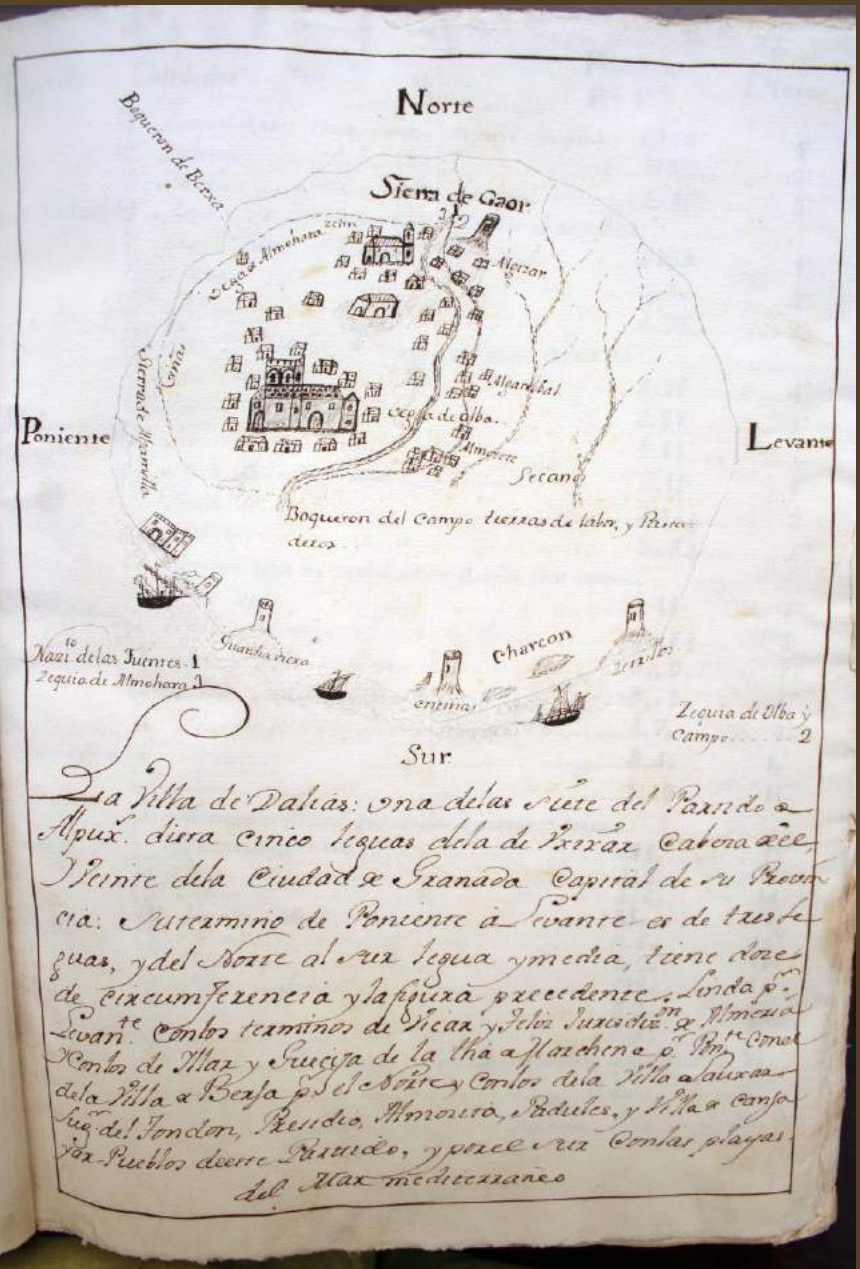 Norte
Boqueron de Berxa
Sierra de Gaor
zelin
Vega de Almohara
Algizar
Viñas
Sierra de Alhamilla
Algarrobal
Vega de Olba.
Poniente
Levante
Almozete
Secano
Boqueron del Campo tierras de labor, y Pasta-
deros.
Guardia viexa
Charcon
Zerrillos
entinas
Nazi.to de las Fuentes. 1
Zequia de Almohara 3
Zequia de Olba y
Campo........ 2
Sur
La Villa de Dalias: una delas siete del Partido de
Alpux.s dista cinco leguas dela de Uxixar Cabeza de el,
Veinte dela Ciudad de Granada Capital de su Provin
cia: su termino de Poniente â Levante es de tres le
guas, y del Norte al sur legua y media, tiene doze
de circumferencia y la figura precedente. Linda p.r
Levan.te con los terminos de Vicar y Felix Jurisdiz.on de Almeria
Y con los de Illar y Guecija de la tha de Marchena p.r Pon.te con el
dela Villa de Berja p.r el Norte y con los dela Villa de Lauxar
Lug.r del Fondon, Presidio, Almozita, Padules, y Villa de Canja
yar Pueblos de este Partido, y por el sur con las playas
del Mar mediterraneo